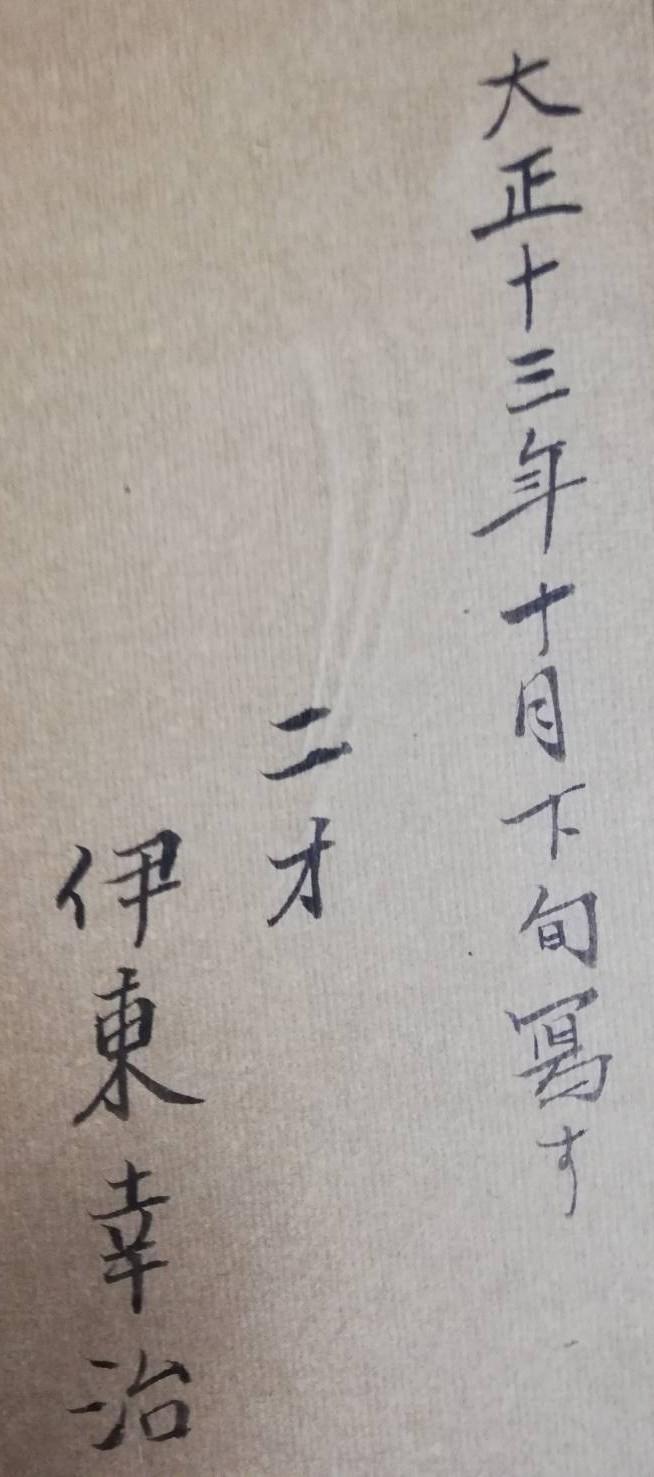 大正十三年十月下旬寫す
二才
伊東幸治